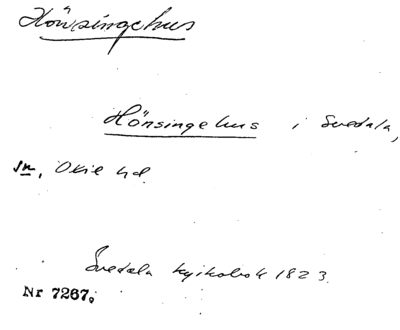 Hönsingehus
Hönsingehus i Svedala,
sn, Oxie hd.
Svedala kyrkobok 1823.
Nr 7267.